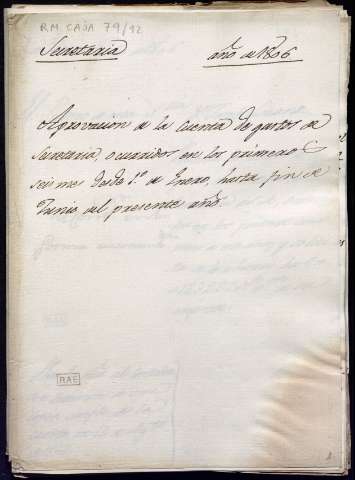 RM CAJA 79/12
Secretaria año de 1806
Aprovacion de la cuenta de gastos de
Secretaria, ocurridos en los primeros
seis mes desde 1.º de Enero, hasta fin de
Junio del presente año.
RAE